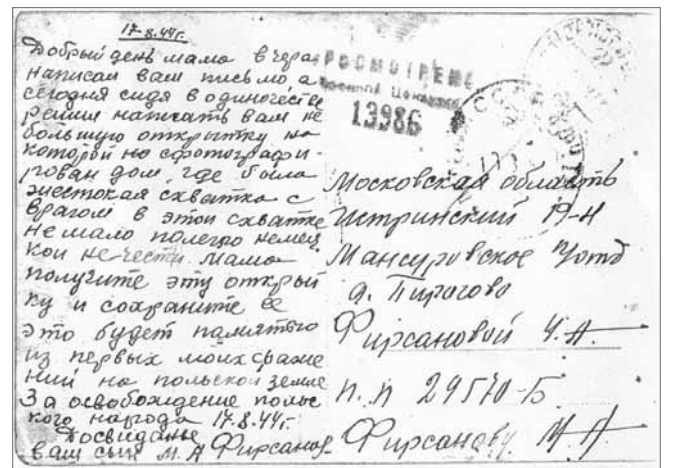 17-8.44г.
Добрый день мама вчера
написал вам письмо а
сегодня сидя в одиночестве
решил написать вам не
большую открытку на
которой но сфотографи-
рован дом, где была
жестокая схватка с
врагом в этой схватке
немало полегро немец
кой нечести. Мама
получите эту открыт
ку и сохраните её
это будет памятью
из первых моих сраже
ний на польской земле
За освобождение поль
ского народа 17.8.44г.
Досвиданье
ваш сын М.А Фирсанов-
ПРОСМОТРЕНО
Военной Цензурой
13986
СССР
Московская область
Истринский р-н
Мансуровское
д. Пирогово
Фирсановой
п.п 29570-Б
Фирсанову М.А.